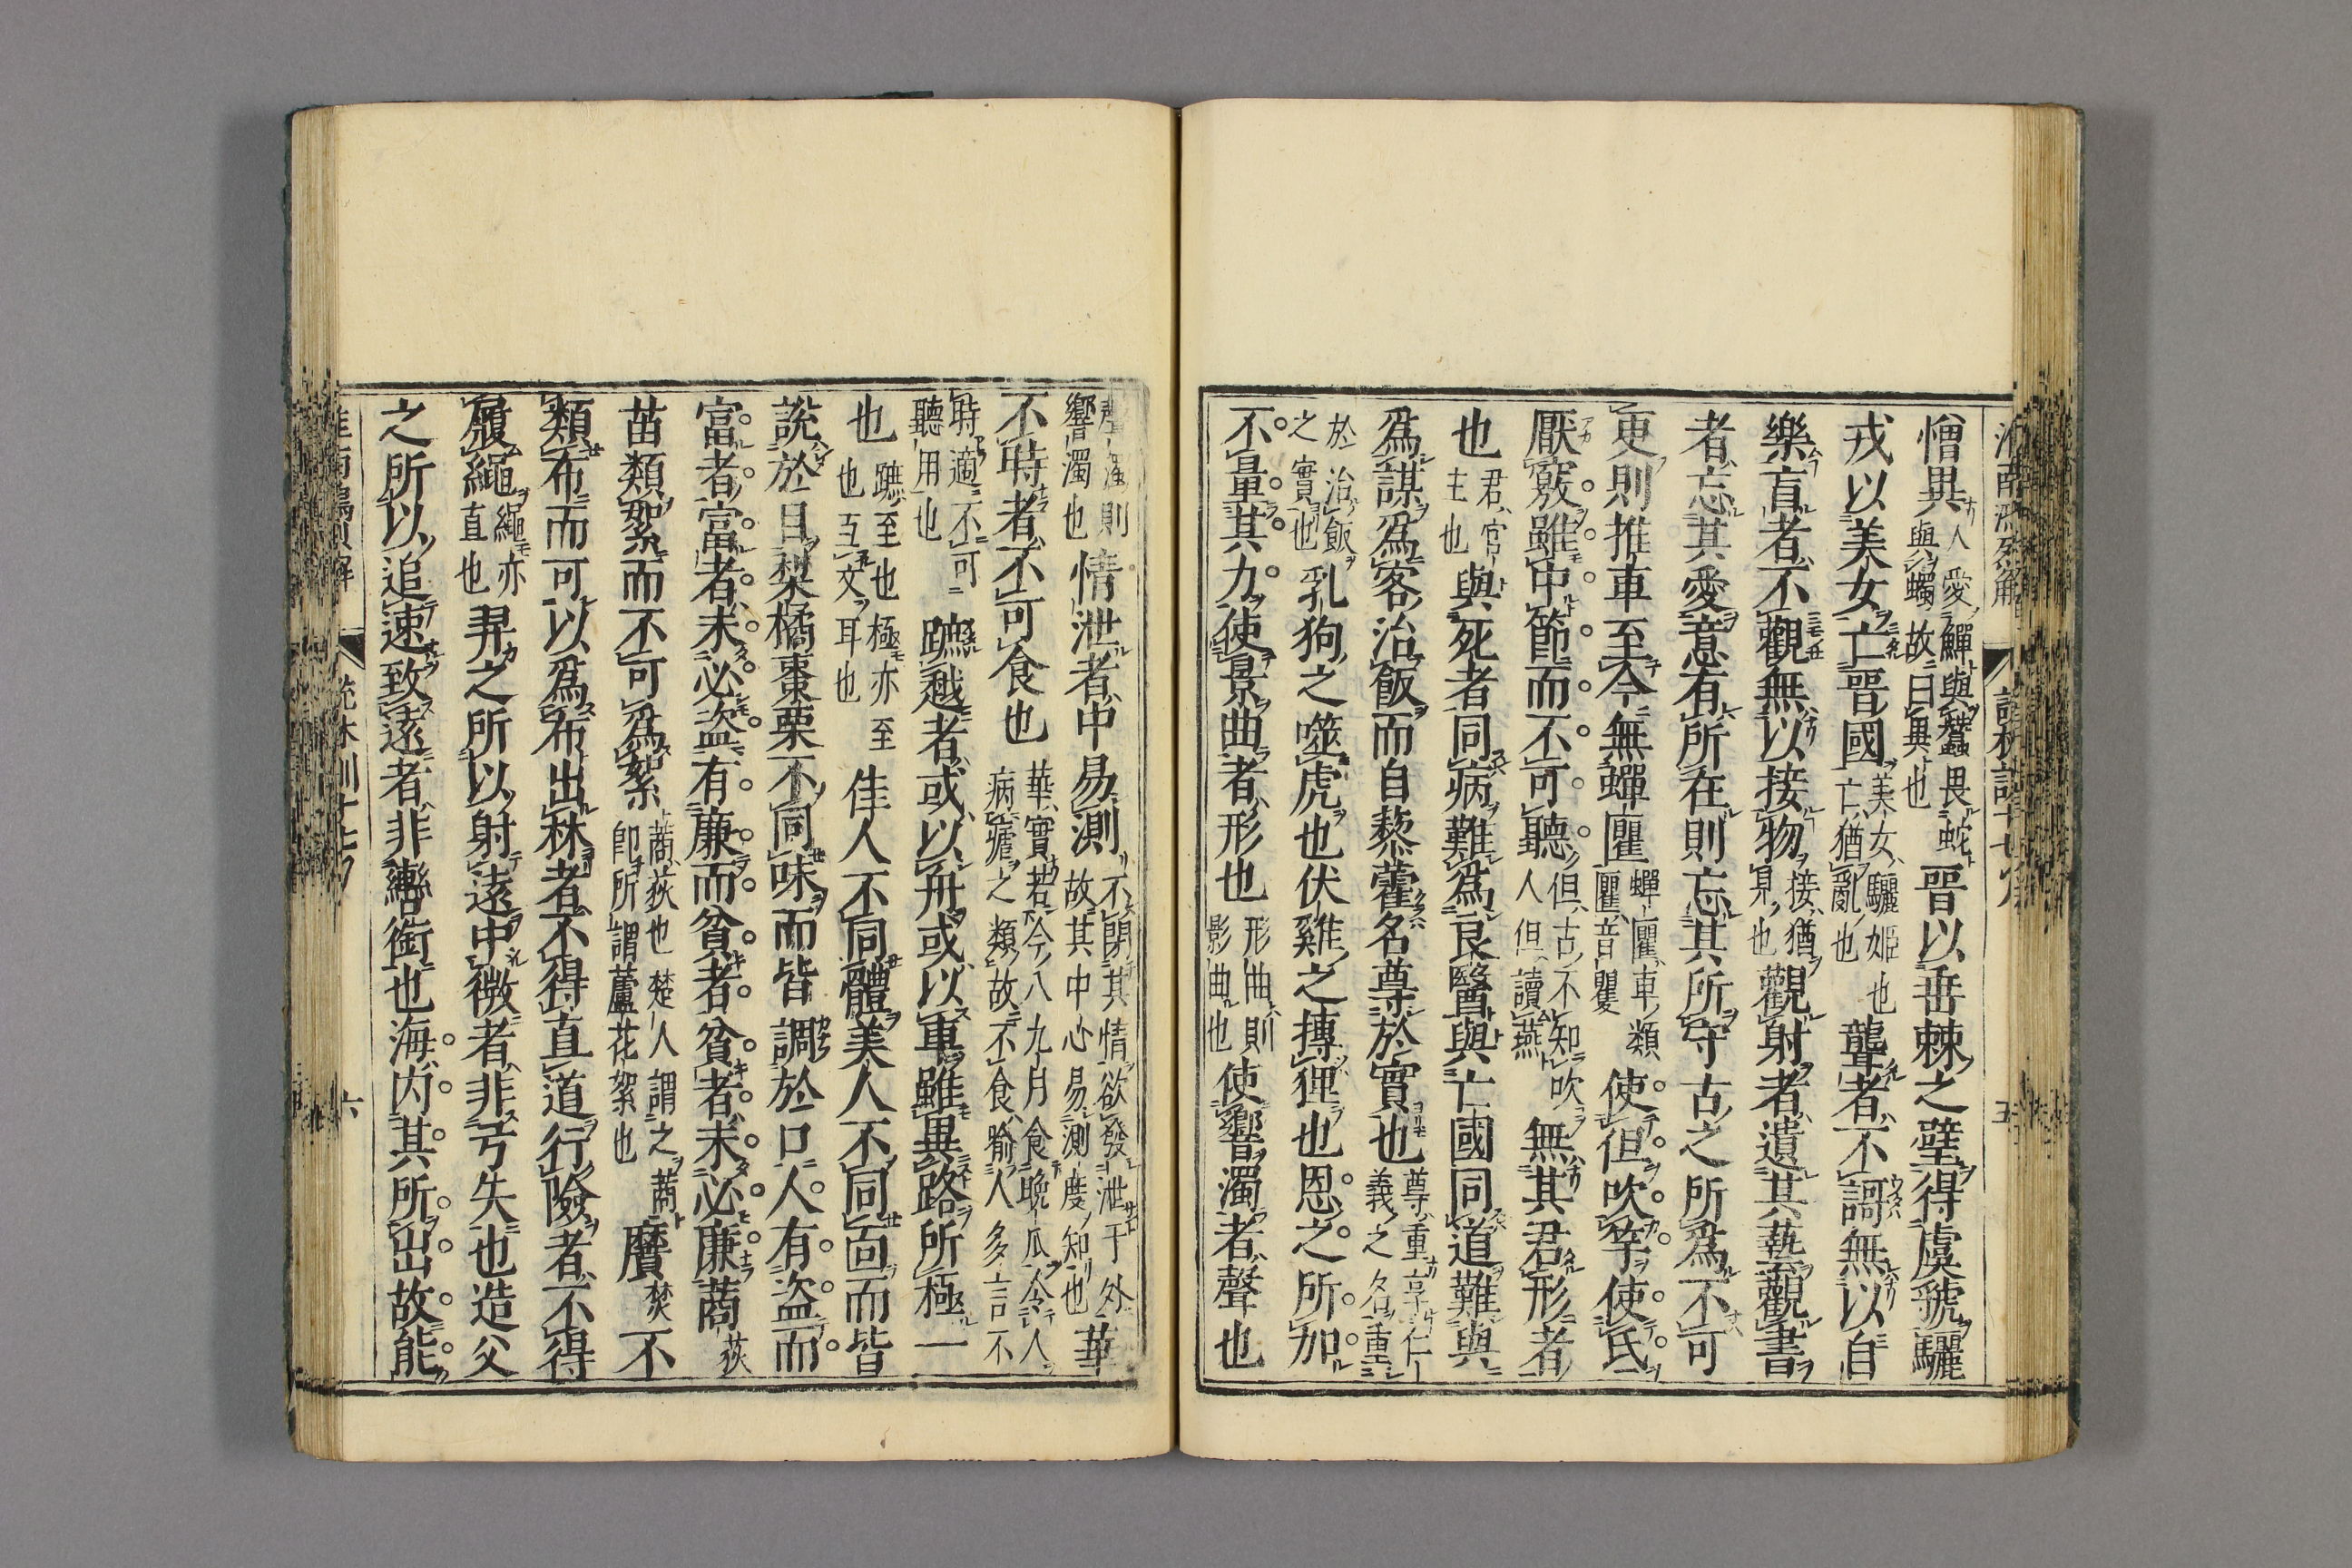 憎異人愛鱓與蠶畏蛇與蠋故曰異也晉以垂棘之璧得虞虢驪
戎以美女亡晉國美女驪姬也亡猶亂也聾者不謌無以自
樂盲者不觀無以接物接猶見也觀射者遺其藝觀書
者忘其愛意有所在則忘其所守古之所為不可
更則推車至今無蟬匷蟬匷車類匷音瞿使但吹竽使氏
厭竅雖中節而不可聽但古不知吹人但讀燕無其君形者
也君官主也與死者同病難為良醫與亡國同道難與
為謀為客治飯而自藜藿名尊於實也尊重享仁義之名重
於治飯之實也乳狗之噬虎也伏雞之搏狸也恩之所加
不量其力使景曲者形也形曲則影曲也使響濁者聲也
聲濁則響濁也情泄者中易測不閉其情欲發泄于外故其中心易測度知也華
不時者不可食也華實若今八九月食晚瓜令人病瘧之類故不食喻人多言不
時適不可聽用也蹠越者或以舟或以車雖異路所極一
也蹠至也極亦至也互文耳也佳人不同體美人不同面而皆
說於目梨橘棗栗不同味而皆調於口人有盜而
富者富者未必盜有廉而貧者貧者未必廉蔐荻
苗類絮而不可為絮蔐荻也楚人謂之蔐即所謂蘆花絮也黂焚不
類布而可以為布出林者不得直道行險者不得
履繩繩亦直也羿之所以射遠中微者非弓矢也造父
之所以追速致遠者非轡銜也海内其所出故能
六